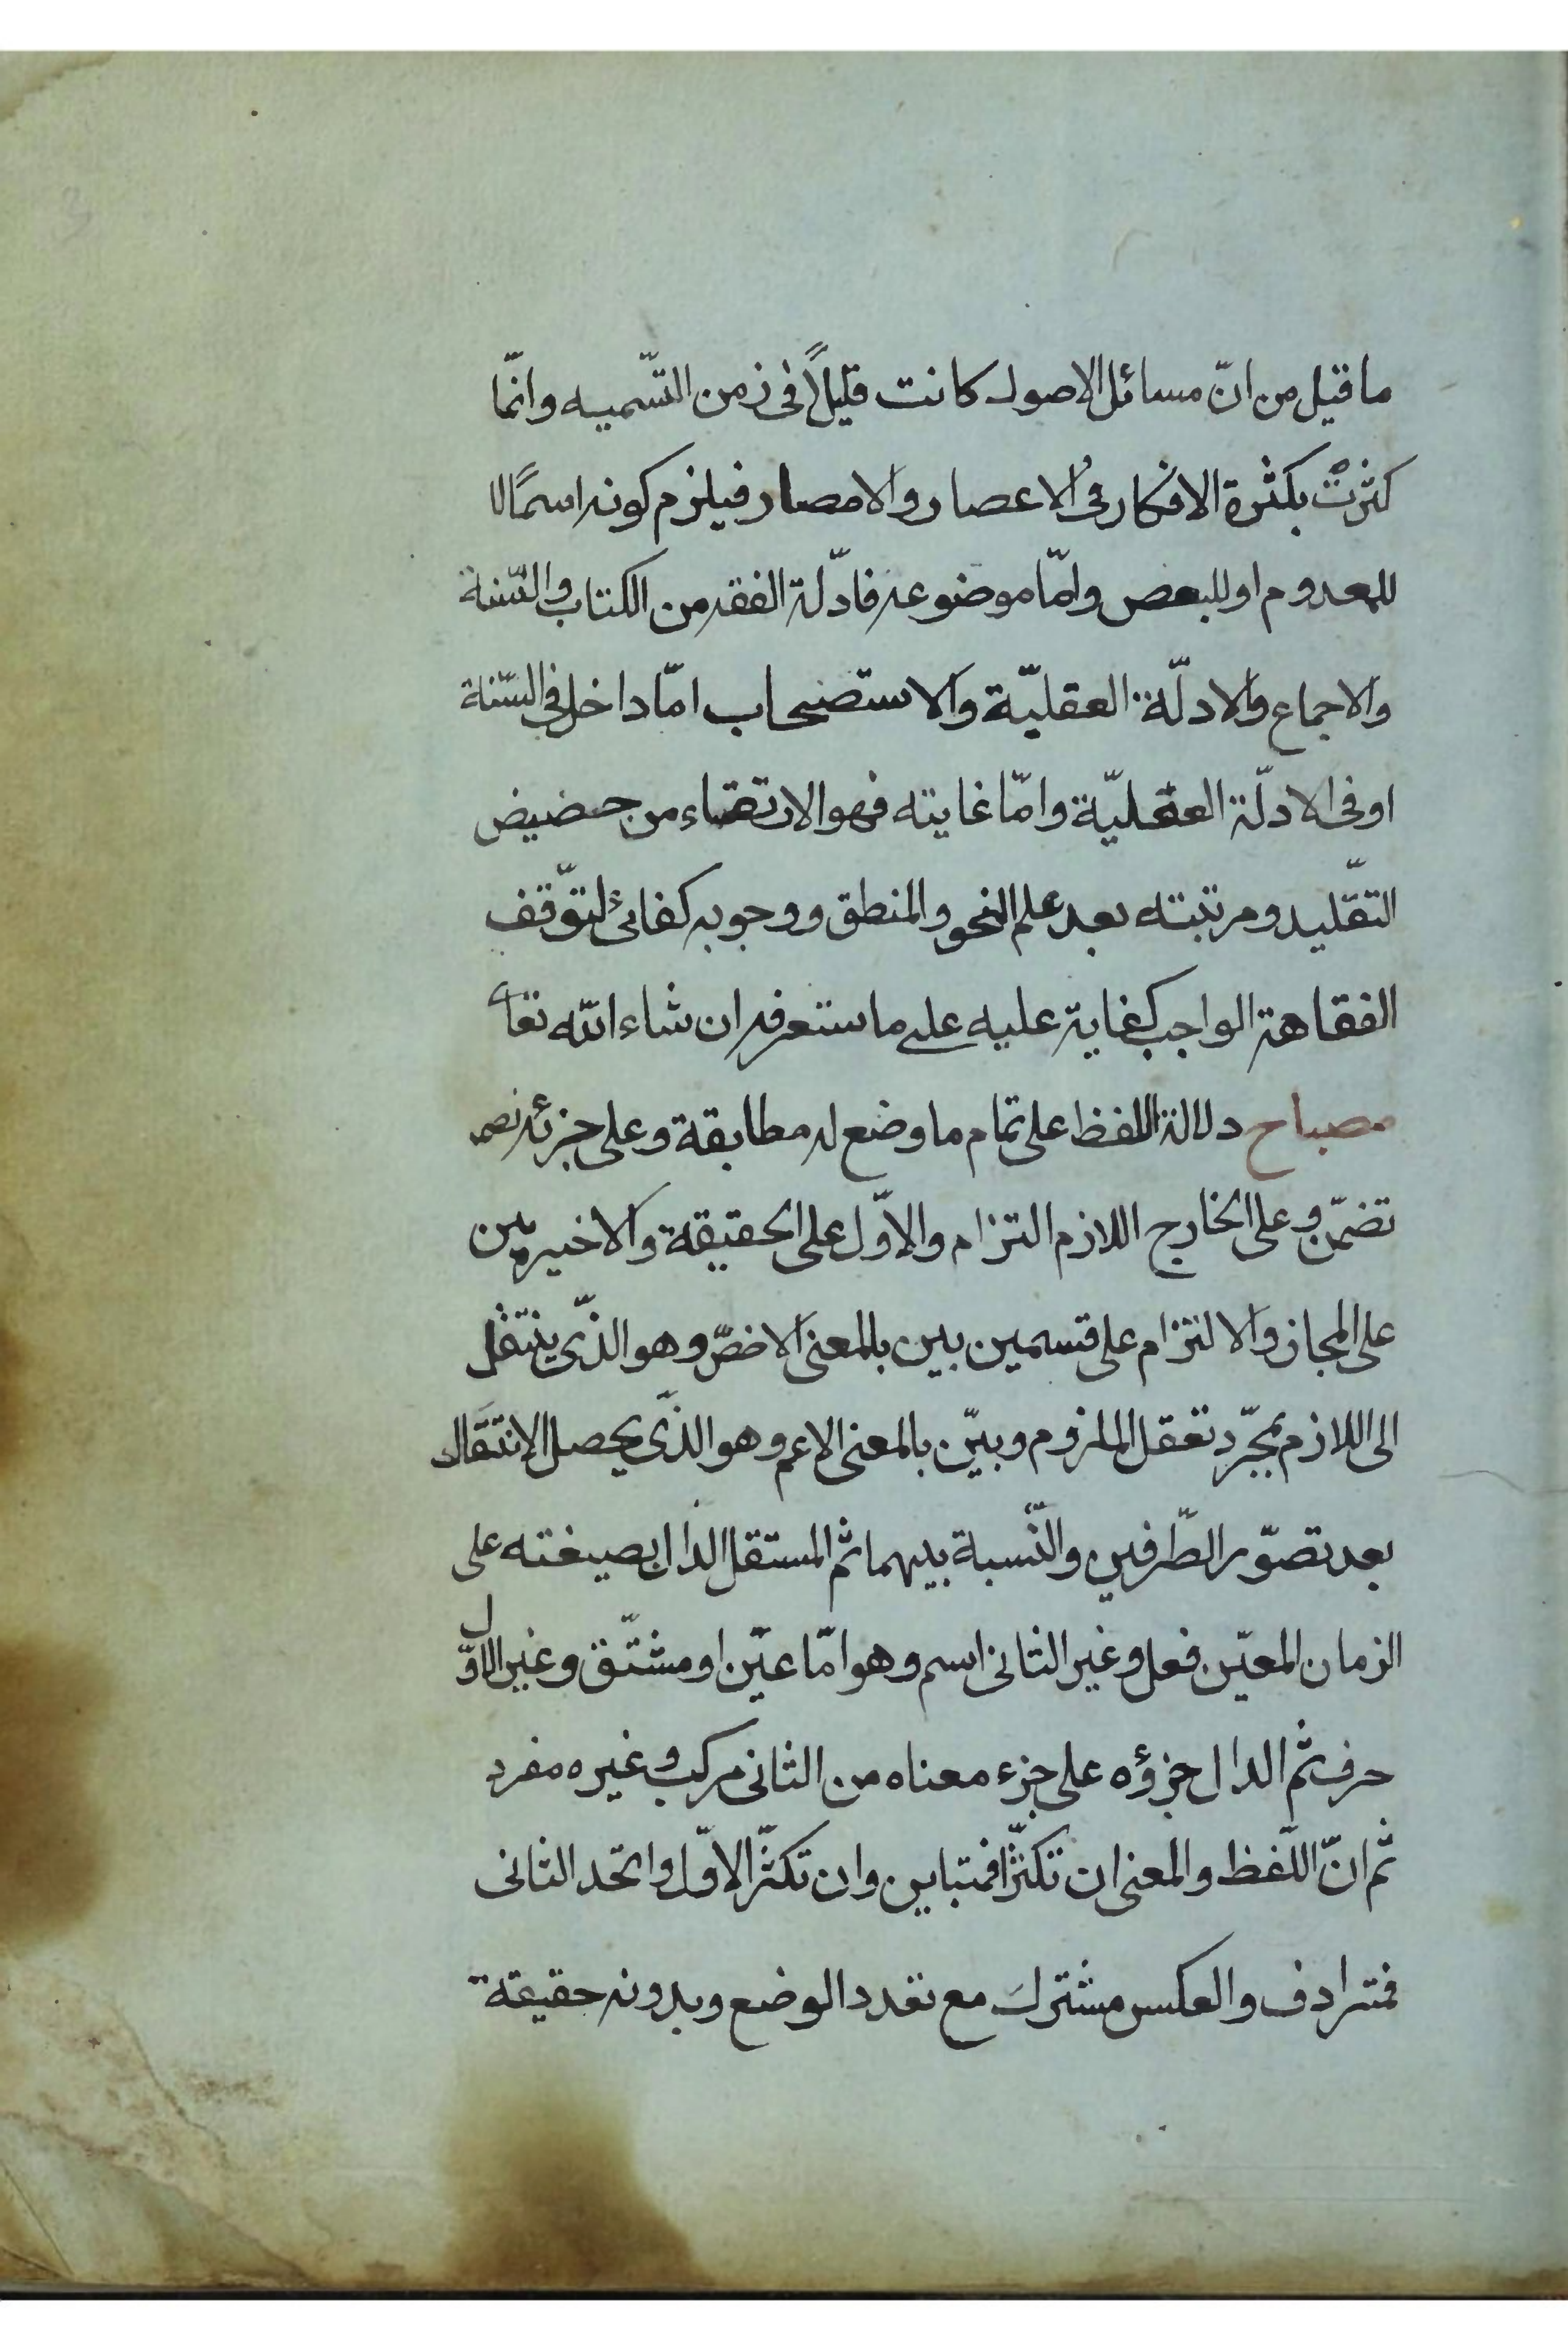 ما قيل من انّ مسائل الاصول كانت قليلاً فى زمن التّسميه وانّما
كثرت بكثرة الافكار فى الاعصار والامصار فيلزم كونه اسمًا لا
للمعدوم او للبعض وامّا موضوعه فادّلة الفقه من الكتاب والسّنة
والاجماع والادلّة العقليّة والاستصحاب امّا داخل فى السّنة
او فى الادلّة العقليّة وامّا غايته فهو الارتقاء من حضيض
التقّليد ومرتبته بعد علم النحو والمنطق ووجوبه كفائى لتوّقف
الفقاهة الواجب كفاية عليه على ما ستعرفه ان شاء الله تعا
مصباح دلالة اللفظ على تمام ما وضع له مطابقة وعلى جزئه
تضمّن وعلى الخارج اللازم التزام والاوّل على الحقيقة والاخيرين
على المجاز والالتزام على قسمين بين بالمعنى الاخصّ وهو الذّى ينتقل
الى اللازم بمجرّد تعقل الملزوم وبيّن بالمعنى الاعم وهو الذّى يحصل الانتقال
بعد تصوّر الطّرفين والنّسبة بينهما ثم المستقل الدال بصيغته على
الزمان المعيّن فعل وغير الثانى اسم وهو امّا عيّن او مشتّق وغير الاوّل
حرف ثم الدال جزؤه على جزء معناه من الثانى مركب وغيره مفرد
ثم انّ اللّفظ والمعنى ان تكثّرا فمتباين وان تكثّر الاوّل واتحد الثانى
فمترادف والعكس مشترك مع تعدد الوضع وبدونه حقيقة